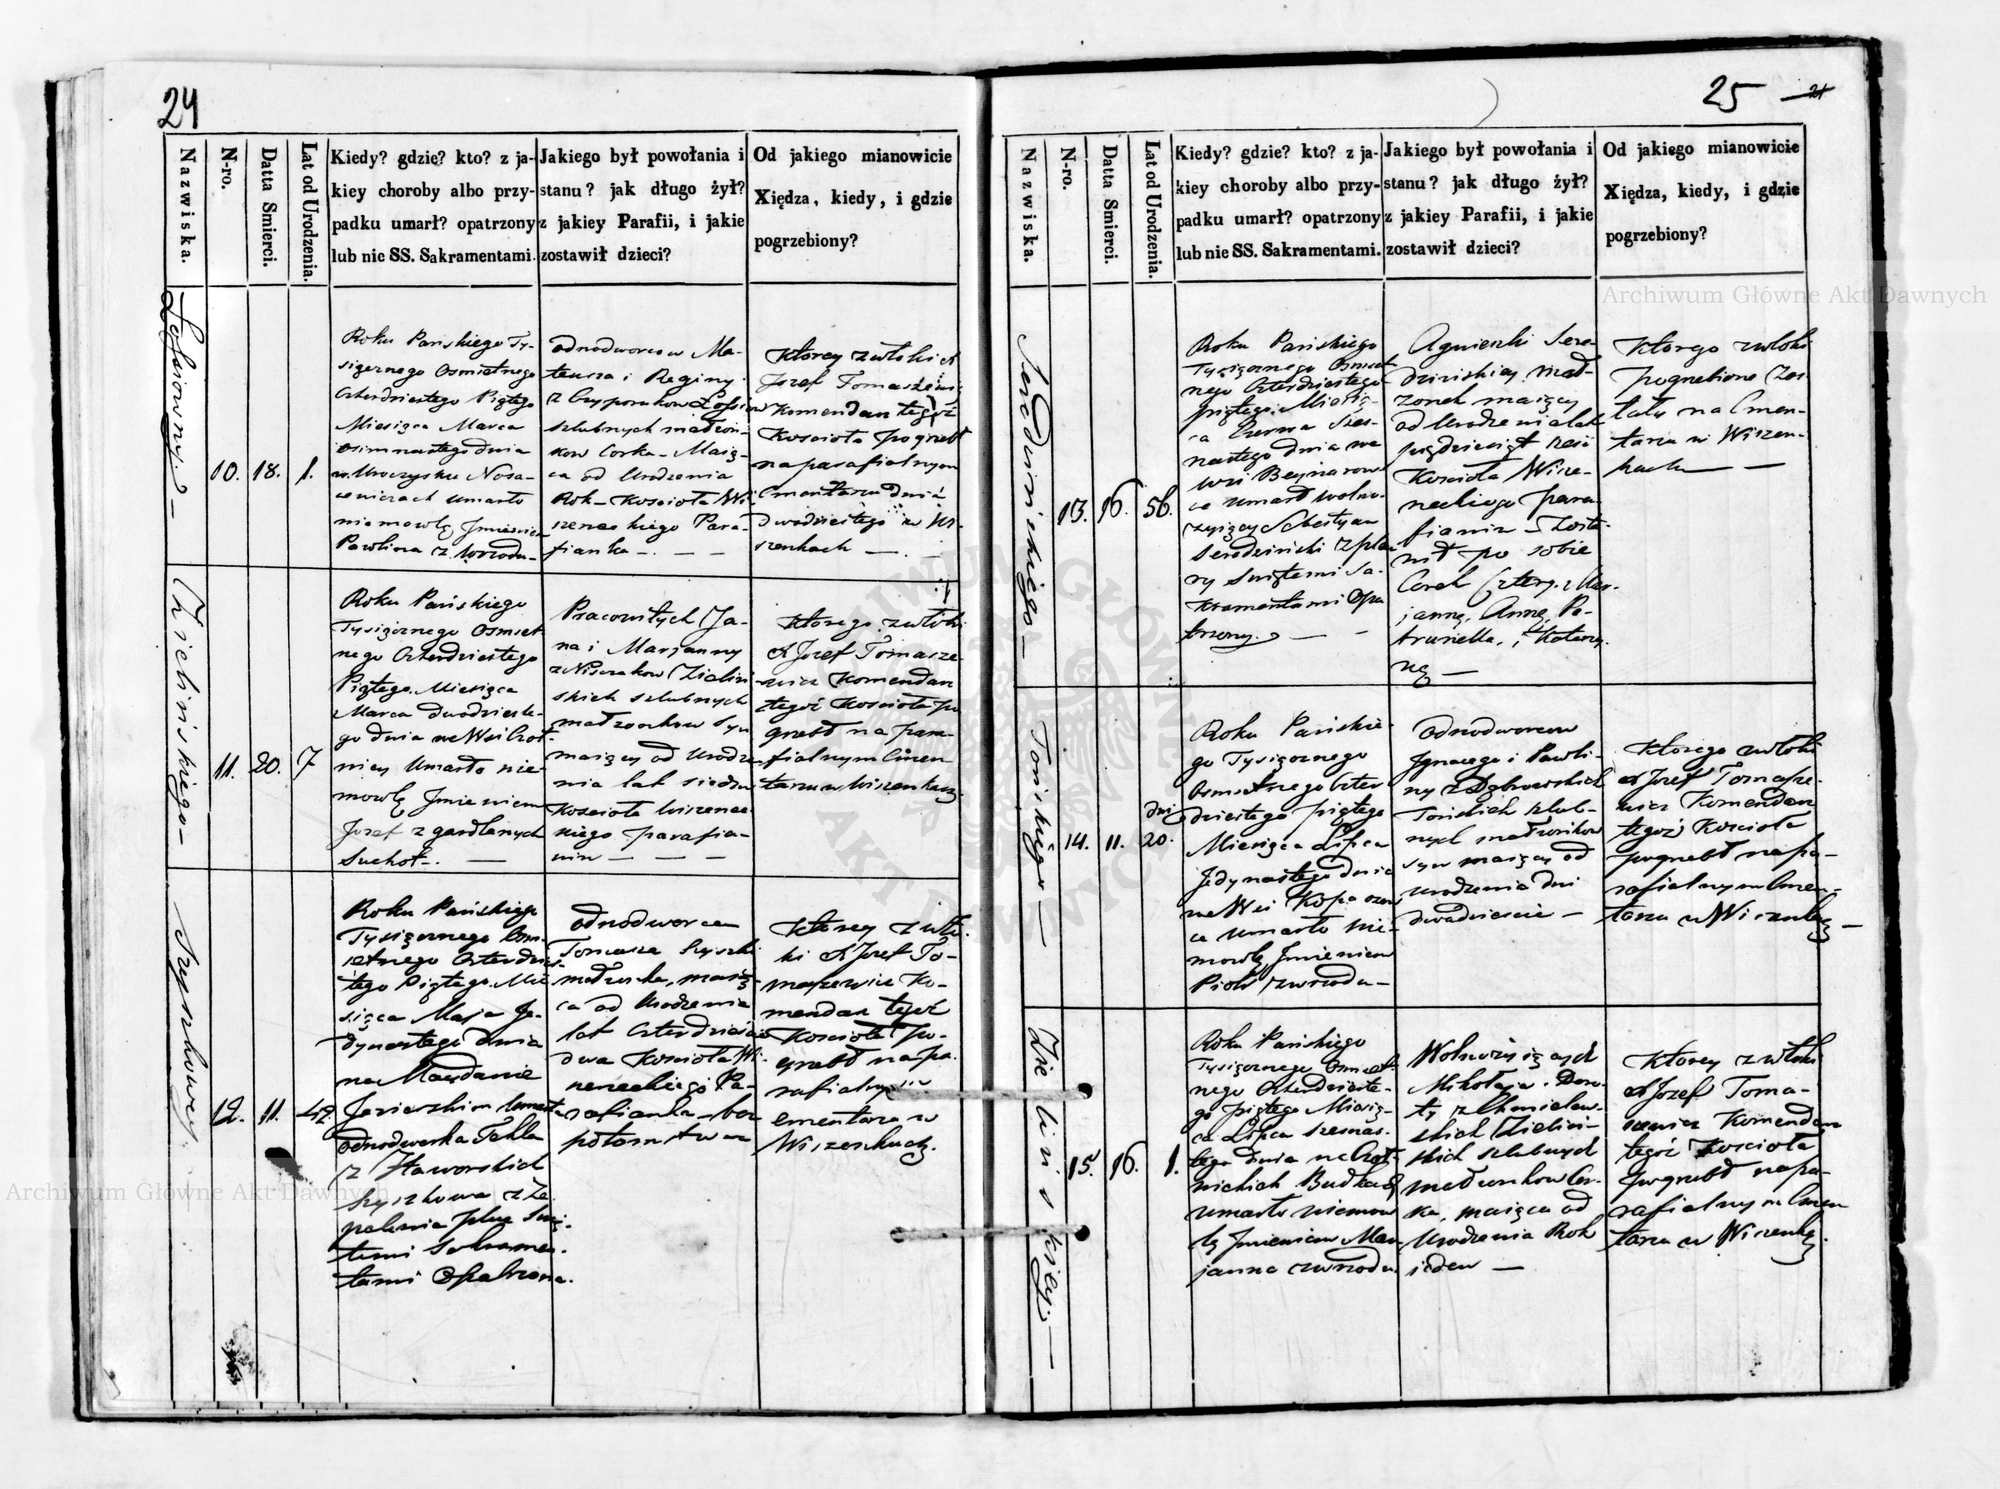 24
Nazwiska.
N-ro.
Datta Smierci.
Lat od Urodzenia.
Kiedy? gdzie? kto? z ja-
kiey choroby albo przy-
padku umarł? opatrzony
lub nie SS. Sakramentami.
Jakiego był powołania i
stanu? jak długo żył?
z jakiey Parafii, i jakie
zostawił dzieci?
Od jakiego mianowicie
Xiędza, kiedy, i gdzie
pogrzebiony?
10.
18.
1.
Roku Pańskiego Ty-
siącznego Osmsetnego
Czterdziestego Piątego
Miesiąca Marca
osimnastego dnia
w Uroczysku Nosa-
cewiczach umarło
niemowlę Jmieniem
Pawlina z wrzodu-
odnodworcow Ma-
teusza i Reginy
szlubnych małżon-
kow Corka- Maią-
ca od Urodzenia
Rok- Kościoła Wi-
szenackiego Para-
fianka-. — —
Ktorey zwłoki X
Jozef Tomaszewicz
Komendarz tegoż
Kościoła pogrzebł
na parafialnym
Cmentarzu dnia
dwudziestego w Wi-
szenkach — . —
Zielińskiego-
11.
20.
7
Roku Pańskiego
Tysiącznego Osmset-
nego Czterdziestego
Piątego Miesiąca
Marca dwudzieste-
go dnia we Wsi Choł-
niewy Umarło nie-
mowlę Jmieniem
Jozef z gardlanych
Suchot-. —
Pracowitych Ja-
na i Marjanny
z Nisczakow Zieliń-
skich szlubnych
małżonkow Syn
maiący od Urodze-
nia lat siedm
Kościoła Wiszenac-
kiego parafia-
nin — — —
Ktorego zwłoki
X Jozef Tomasze-
wicz Komendarz
tegoż Kościoła po
grzebł na para-
fialnym Cmen-
tarzu w Wiszenkach.
Szyszkowey.
12.
11.
42
Roku Pańskiego
Tysiącznego Osm-
setnego Czterdzies-
tego Piątego Mie
siąca Maja Je-
dynastego dnia
na Maydanie
Jezierskim Umarła
odnodworka Tekla
z Jaworskich
Szyszkowa z Za-
palenia płuc Swię-
temi Sakramen-
tami Opatrzona.
odnodworca
Tomasza Szyszki
małżonka, maią-
ca od Urodzenia
lat Czterdzieście
dwa Kościoła Wi-
szenackiego Pa-
rafianka- bez
potomstwa
Ktorey zwło-
ki X Jozef To-
maszewicz Ko-
mendarz tegoż
Kościoła po-
grzebł na pa-
rafialnym
Cmentarzu w
Wiszenkach.
25
21
Nazwiska.
N-ro.
Datta Smierci.
Lat od Urodzenia.
Kiedy? gdzie? kto? z ja-
kiey choroby albo przy-
padku umarł? opatrzony
lub nie SS. Sakramentami.
Jakiego był powołania i
stanu? jak długo żył?
z jakiey Parafii, i jakie
zostawił dzieci?
Od jakiego mianowicie
Xiędza, kiedy, i gdzie
pogrzebiony?
Serodzińskiego-
13.
16.
56.
Roku Pańskiego
Tysiącznego Osmset
nego Czterdziestego
piątego Miesią-
ca Czerwca Szes-
nastego dnia we
wsi Beynarow
ce umarł wolno-
żyiący Sebestyan
Serodziński z pla
ry Swiętemi Sa-
kramentami Opa
trzony. — -
Agnieszki Sero
dzińskiey małż-
żonek maiący
od Urodzenia lat
pięćdziesiąt sześć
Kościoła Wisze-
nackiego para
fianin — Zosta-
wił po sobie
Corek Cztery. Mar-
jannę, Annę, Pe-
trunella, i Katarzy-
nę —
Ktorego zwłoki
pogrzebione zos-
tały na Cmen-
tarzu w Wiszen-
kach — —
Tońskiego —
14.
11.
dni
20.
Roku Pańskie-
go Tysiącznego
Osmsetnego Czter
dziestego piątego
Miesiąca Lipca
Jedynastego dnia
we Wsi Kopaczow
ce umarło nie-
mowlę Jmieniem
Piotr z wrzodu-
odnodworcow
Jgnacego i Pawli-
ny z Dąbrowskich
Tońskich szlub-
nych małżonkow
syn maiący od
urodzenia dni
dwadzieście —
Ktorego zwłoki
X Jozef Tomasze-
wicz Komendarz
tegoż Kościoła
pogrzebł na pa-
rafialnym Cmen-
tarzu w Wiszenkach —
Zielińskiey. —
15.
16.
1.
Roku Pańskiego
Tysiącznego Osmset-
nego Czterdzieste-
go piątego Miesią-
ca Lipca szesnas-
tego dnia na Choł-
niewskich Budkach
umarło niemow
lę Jmieniem Mar
janna z wrzodu
Wolnożyiących
Mikołaja i Doro-
ty z Chmielew-
skich Zieliń-
skich szlubnych
małżonkow Cor-
ka, maiąca od
Urodzenia Rok
ieden —
Ktorey zwłoki
X Jozef Toma-
szewicz Komendarz
tegoż Kościoła
pogrzebł na pa-
rafialnym Cmen
tarzu w Wiszenkach.
Archiwum Główne Akt Dawnych
Archiwum Główne Akt Dawnych
ARCHIWUM GŁÓWNE
AKT DAWNYCH